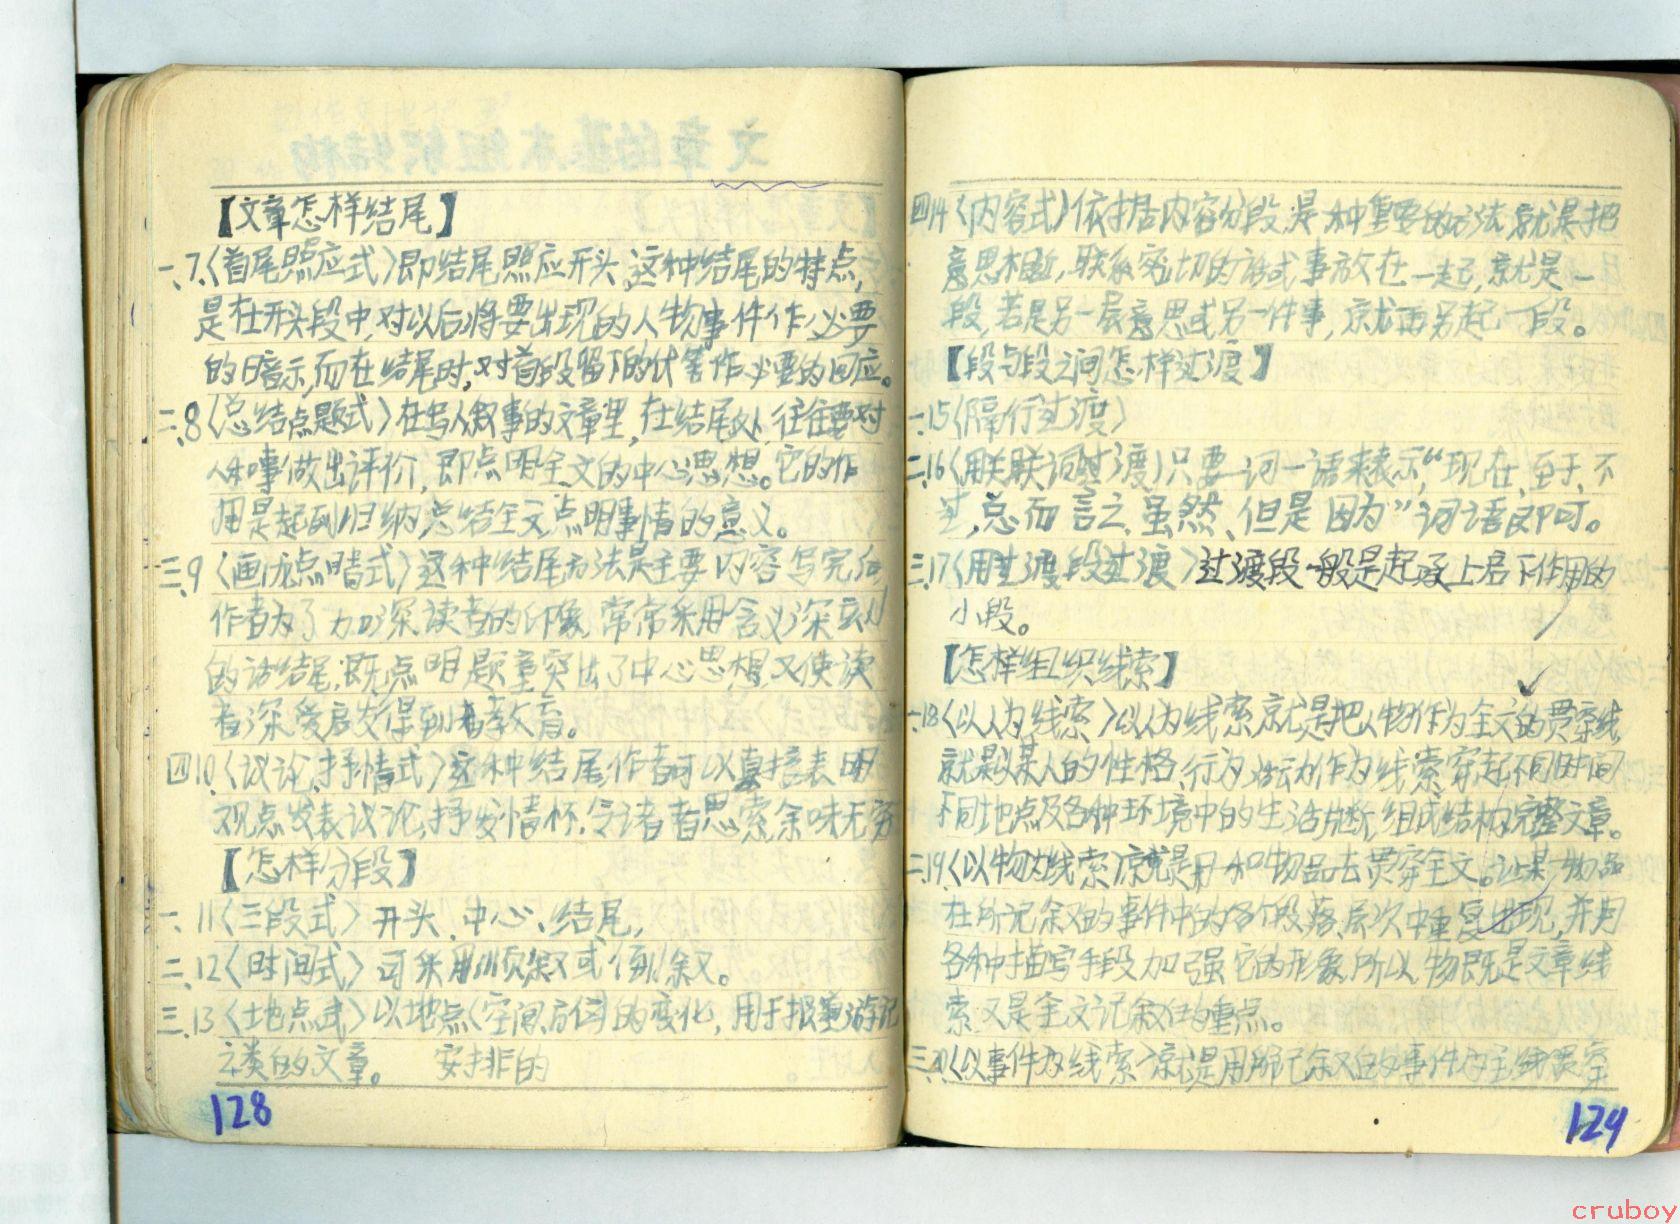 【文章怎样结尾】
一、7、〈首尾照应式〉即结尾照应开头,这种结尾的特点,
是在开头段中,对以后将要出现的人物事件作必要
的暗示,而在结尾时,对首段留下的伏笔作必要的回应。
二、8〈总结点题式〉在写人叙事的文章里,在结尾处,往往要对
人和事做出评价,即点明全文的中心思想。它的作
用是起到归纳,总结全文点明事情的意义。
三、9〈画龙点睛式〉这种结尾方法是主要内容写完后
作者为了加深读者的印象,常常采用含义深刻
的话结尾,既点明题重突出了中心思想,又使读
者深受启发得到着教育。
四10、〈议论、抒情式〉这种结尾,作者时以直接表明
观点发表议论,抒发情怀,令读者思索,余味无穷
【怎样分段】
一、11〈三段式〉开头、中心、结尾,
二、12〈时间式〉可采用顺叙或倒叙。
三、13〈地点式〉以地点(空间、方位)的变化,用于报章游记
之类的文章。 安排的
128
四14〈内容式〉依据内容分段,是一种重要的方法,就是把
意思相近,联系密切的话或事放在一起,就是一
段,若是另一层意思或另一件事,就再另起一段。
【段与段之间怎样过渡】
一、15〈隔行过渡〉
二、16〈用关联词过渡〉只要一词一语来表示,“现在、至于、不
过,总而言之、虽然、但是因为”词语即可。
三、17〈用过渡段过渡〉过渡段一般是起承上启下作用的
小段。
【怎样组织线索】
一、18〈以人为线索〉以人为线索就是把人物作为全文的贯穿线,
就是以某人的性格、行为、活动作为线索穿起不同时间
不同地点及各种环境中的生活片断,组成结构完整文章。
二、19〈以物为线索〉就是用一种物品去贯穿全文。让某一物品
在所记叙的事件中的各个段落、层次中重复出现,并用
各种描写手段加强它的形象,所以物既是文章线
索,又是全文记叙的重点。
三、20〈以事件为线索〉就是用所记叙的事件为主线贯穿
129
cruboy